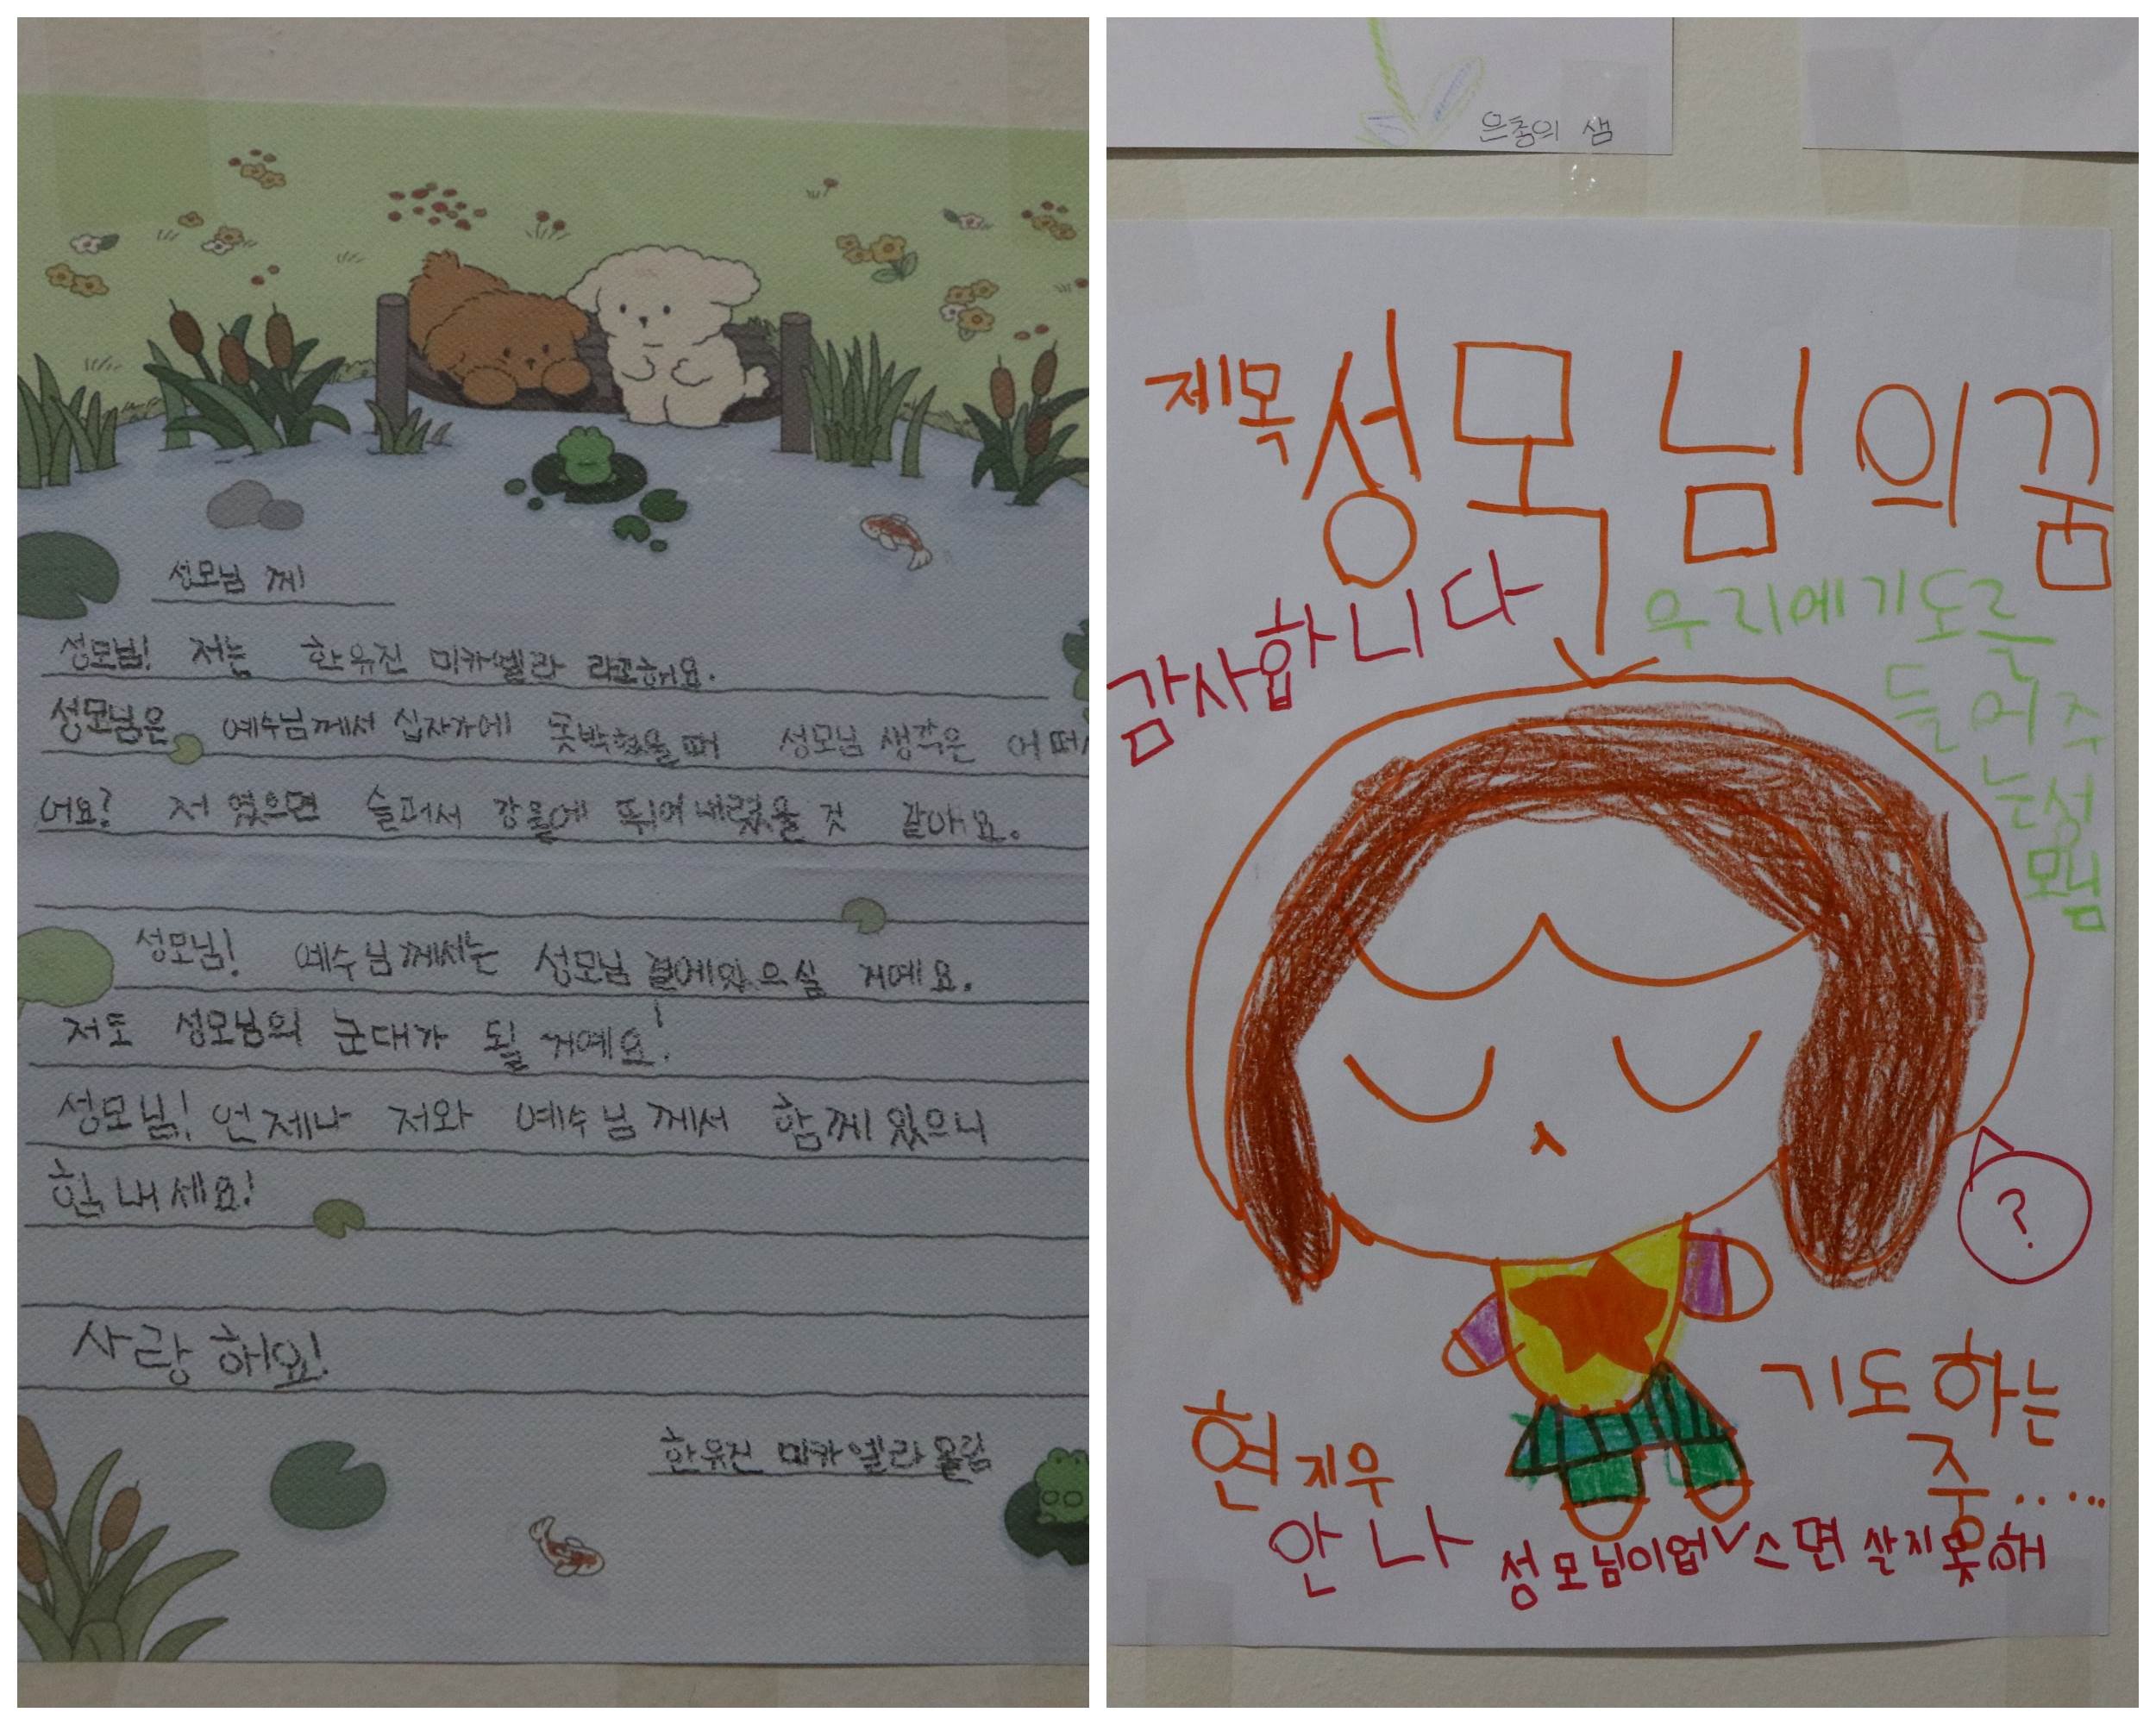 성모님 께
성모님! 저는 한유진 미카엘라 라고해요.
성모님은 예수님께서 십자가에 못박혔을때 성모님 생각은 어떠
어요? 저 였으면 슬퍼서 강물에 뛰어내렸을 것 같아요.
성모님! 예수님께서는 성모님 곁에있으실 거예요.
저도 성모님의 군대가 될 거예요!
성모님! 언제나 저와 예수님께서 함께있으니
힘내세요!
사랑해요!
한유진 미카엘라 올림
은총의 샘
제목 성모님의꿈
감사합니다
우리에기도를
들어주
는성
모님
?
기도하는
중.....
현지우
안나
성모님이업스면 살지못해